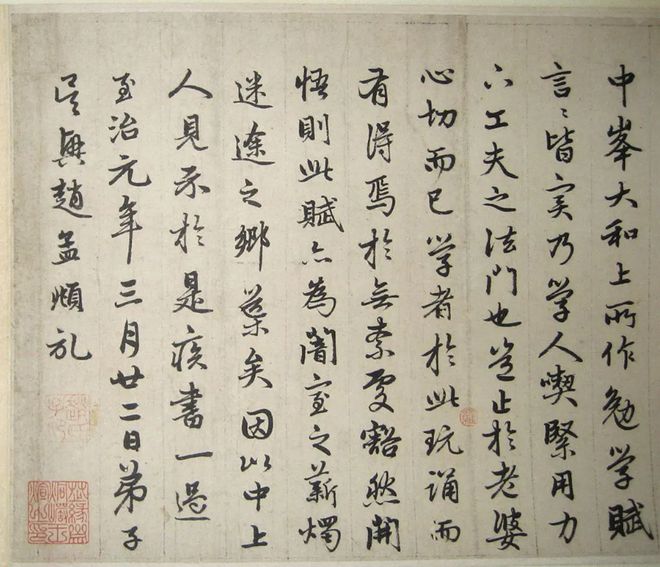 中峯大和上所作勉学賦
言〻皆實乃学人喫緊用力
下工夫之法門也豈止於老婆
心切而已学者於此玩誦而
有得焉於無索處豁然開
悟則此賦亦為闇室之薪燭
迷途之鄉導矣因以中上
人見示於是疾書一過
至治元年三月廿二日弟子
吳興趙孟頫礼